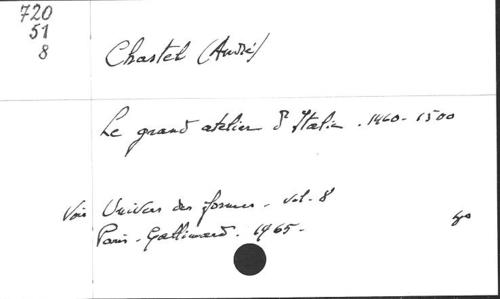 720
51
8
Chastel (André)
Le grand atelier d'Italie . 1460-1500
Voir Univers des formes - vol. 8
Paris - Gallimard . 1965 -